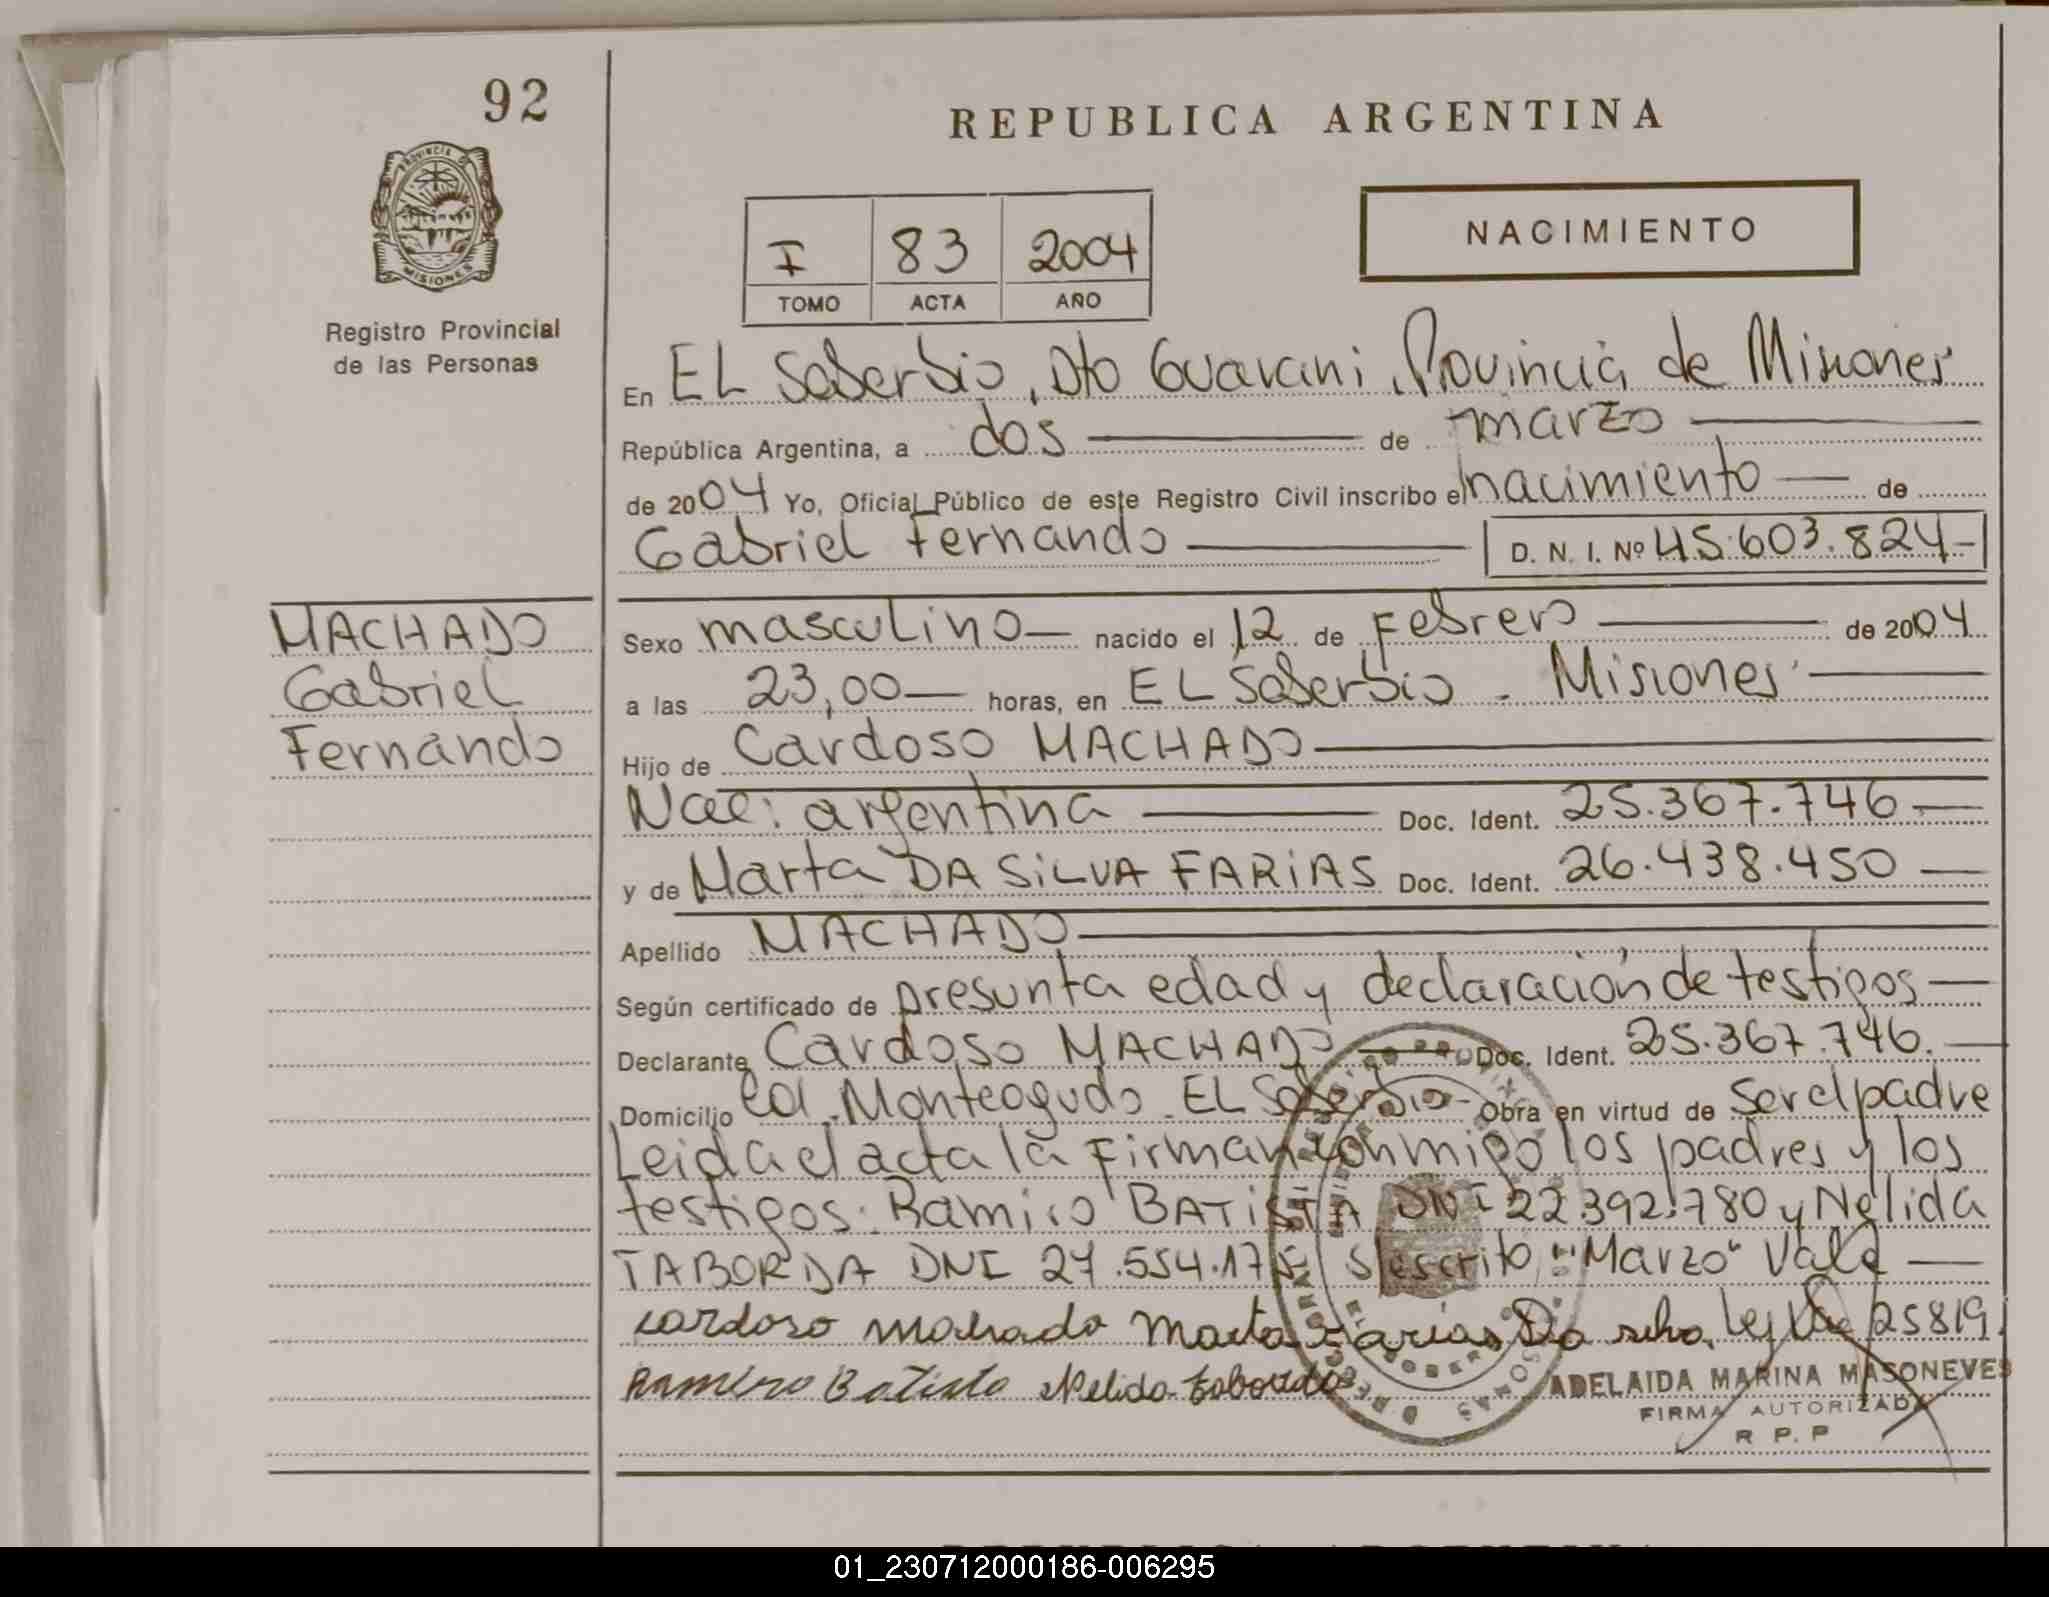 92
REPUBLICA ARGENTINA
PROVINCIA DE
MISIONES
Registro Provincial
de las Personas
I 83 2004
TOMO ACTA AÑO
NACIMIENTO
En EL Soberbio, Dto Guarani, Provincia de Misiones
República Argentina, a dos de marzo
de 2004 Yo, Oficial Público de este Registro Civil inscribo el nacimiento de
Gabriel Fernando D. N. I. Nº 45.603.824
MACHADO
Gabriel
Fernando
Sexo masculino nacido el 12 de Febrero de 2004
a las 23,00 horas, en EL Soberbio - Misiones
Hijo de Cardoso MACHADO
Nac: argentina Doc. Ident. 25.367.746
y de Marta DA SiLVA FARiAS Doc. Ident. 26.438.450
Apellido MACHADO
Según certificado de presunta edad y declaración de testigos
Declarante Cardoso MACHADO Doc. Ident. 25.367.746.
Domicilio Col. Monteagudo EL Soberbio Obra en virtud de Ser el padre
Leida el acta la Firman conmigo los padres y los
testigos: Ramiro BATiSTA DNI 22.392.780 y Nelida
TABORDA DNI 27.554.175 S/escrito "Marzo" Vale
cardoso machado Marta Farias Da silva. Ley 25819.
Ramiro Batista Nelida taborda
ADELAIDA MARINA MASONEVES
FIRMA AUTORIZADA
R P. P
01_230712000186-006295